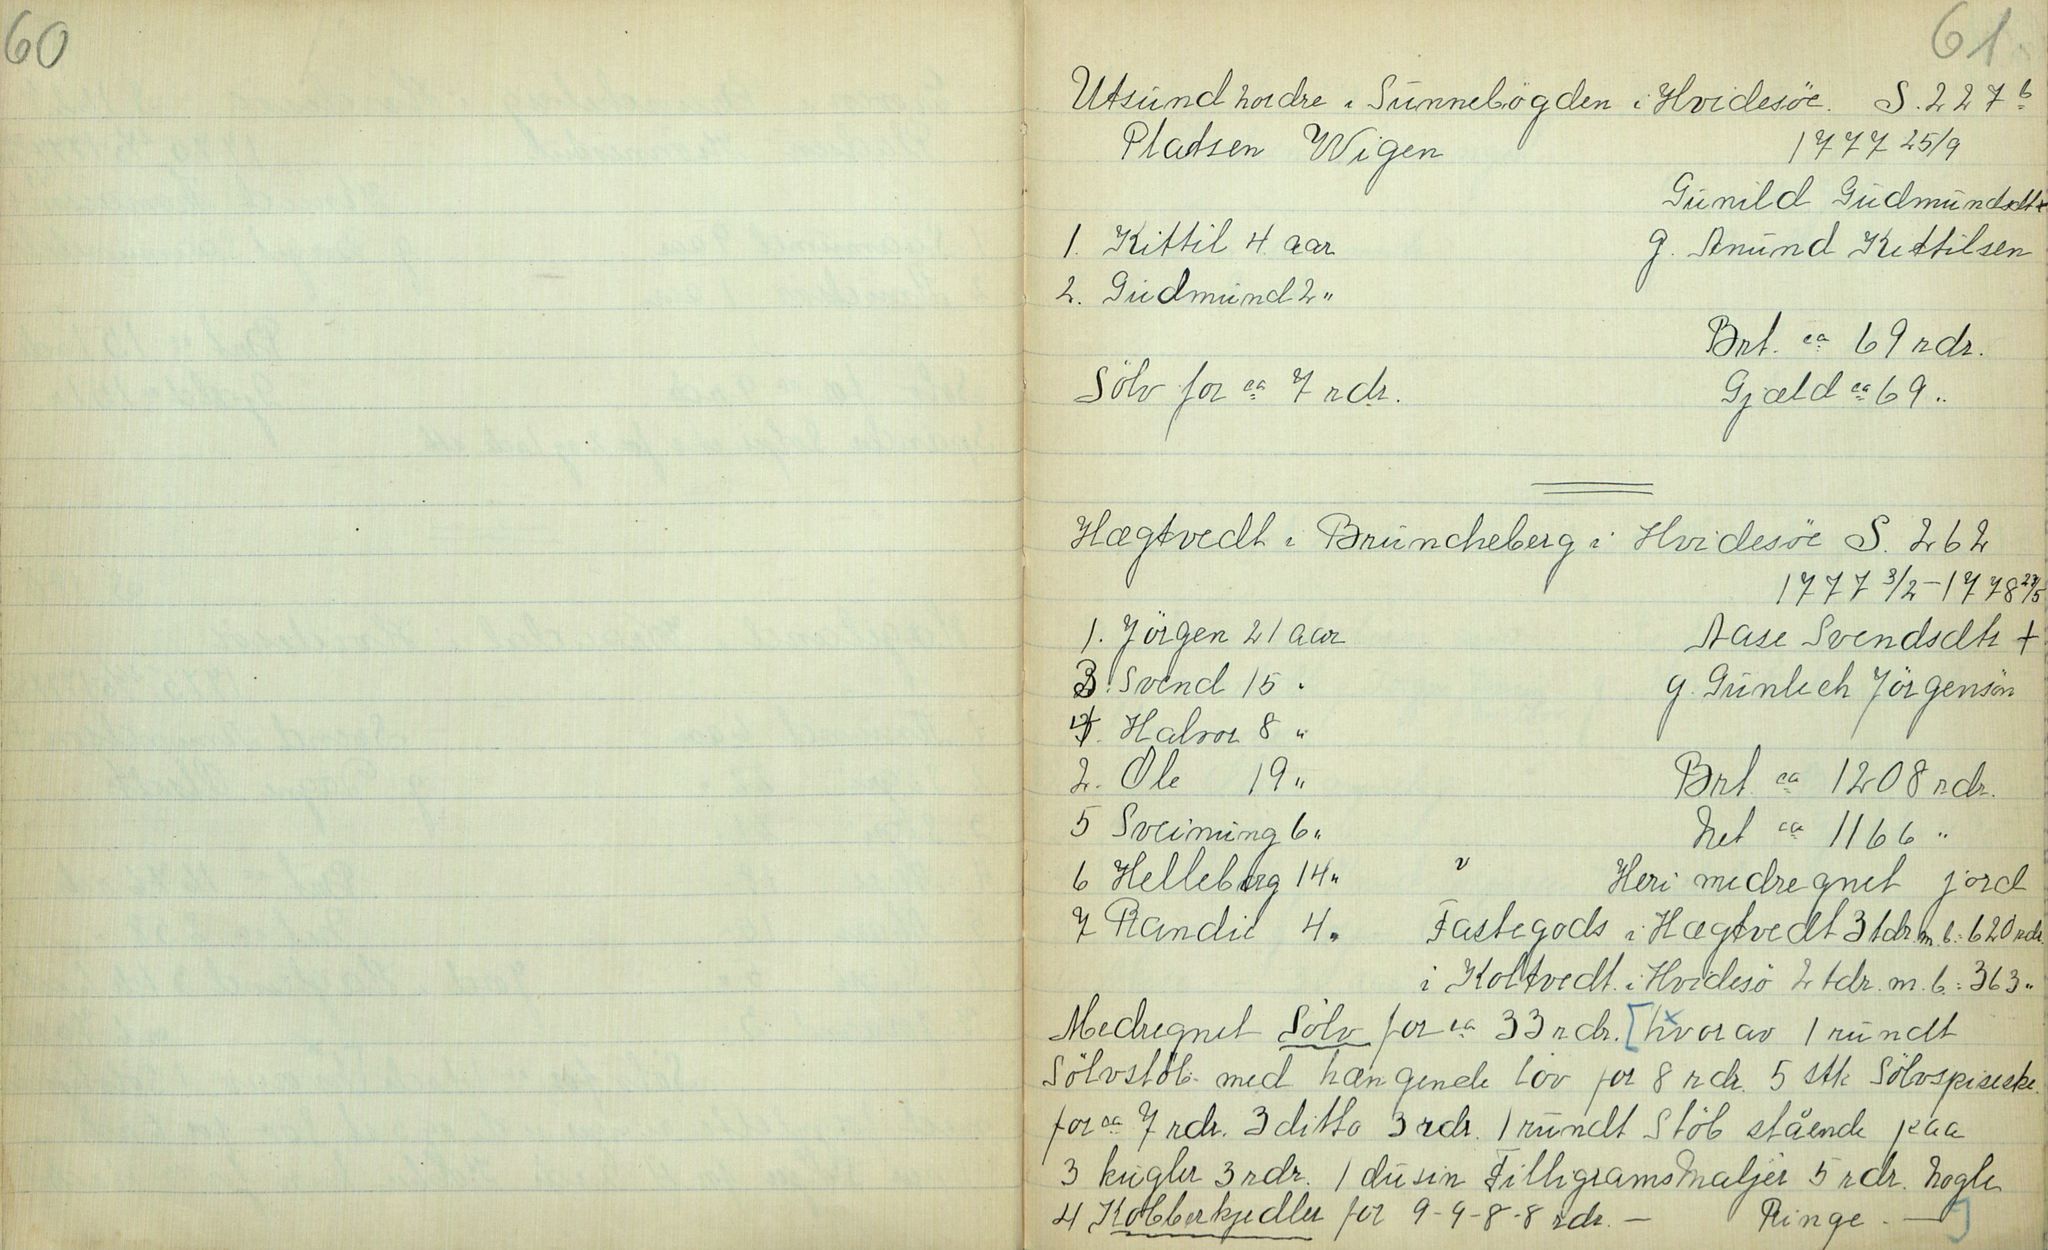 60
61
Utsund nordre i Sunnebögden i Hvidesöe. S. 227 b
Pladsen Wigen 1777 25/9
Gunild Gudmundsdtr
1. Kittil 4 aar g. Anund Kittilsen
2. Gudmund 2 "
Brt. ca 69 rdr.
Sölv for ca 7 rdr. Gjæld ca 69 "
Hægtvedt i Bruncheberg i Hvidesöe S. 262
1777 3/2 - 1778 23/5
1. Jörgen 21 aar Aase Svendsdtr +
3. Svend 15 " g. Gunlech Jörgensön
4. Halvor 8 "
2. Ole 19 " Brt. ca 1208 rdr.
5 Sveinung 6 " Net ca 1166 "
6 Helleberg 14 " Heri medregnet jord
7 Randie 4 " Fastegods i Hægtvedt 3 tdr. m. b.: 620 rdr.
i Koltvedt i Hvidesö 2 tdr. m. b.: 363 "
Medregnet Sölv for ca 33 rdr. [hvorav 1 rundt
Sölvstöb med hængende löv for 8 rdr. 5 stk Sölvspiseske
for ca 7 rdr. 3 ditto 3 rdr. 1 rundt Stöb stående paa
3 kugler 3 rdr. 1 dusin Filligrams Maljer 5 rdr. Nogle
4 Kobberkjedler for 9-9-8-8 rdr. — Ringe. —]